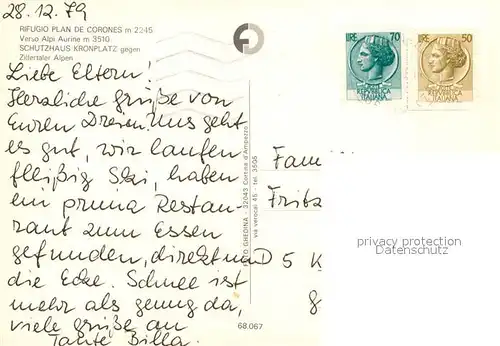 28.12.79
RIFUGIO PLAN DE CORONES m 2245
Verso Alpi Aurine m 3510
SCHUTZHAUS KRONPLATZ gegen
Zillertaler Alpen
Liebe Eltern!
Herzliche grüße von
Euren Dreien. Uns geht
es gut, wir laufen
fleißig Ski, haben
ein prima Restau-
rant zum Essen
gefunden, direkt um
die Ecke. Schnee ist
mehr als genug da,
viele grüße an
Tante Billa.
FOTO GHEDINA - 32043 Cortina d'Ampezzo
via verocai 45 - tel. 3506
68.067
LIRE 70
REPUBBLICA
ITALIANA
LIRE 50
REPUBBLICA
ITALIANA
Fam
Fritz
D 5 K
g
privacy protection
Datenschutz